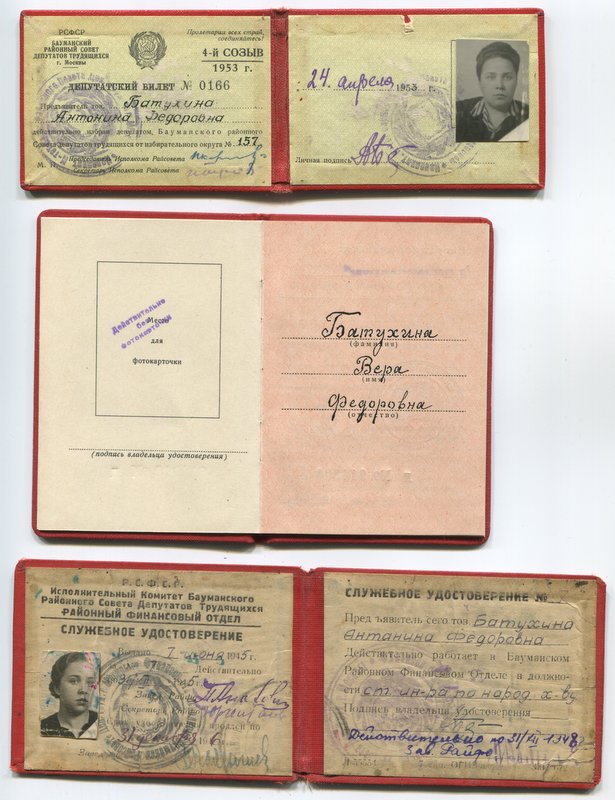 РСФСР
БАУМАНСКИЙ
РАЙОННЫЙ СОВЕТ
ДЕПУТАТОВ ТРУДЯЩИХСЯ
г. Москвы
Пролетарии всех стран,
соединяйтесь!
4-й СОЗЫВ
1953 г.
ДЕПУТАТСКИЙ БИЛЕТ № 0166
Предъявитель тов. Батухина
Антонина Федоровна
действительно избран депутатом, Бауманского районного
Совета депутатов трудящихся от избирательного округа № 157
Председатель Исполкома Райсовета
М. П.
Секретарь Исполкома Райсовета
24 апреля 1953 г.
Личная подпись
Действительно
без
фотокарточки
Место
для
фотокарточки
(подпись владельца удостоверения)
Батухина
(фамилия)
Вера
(имя)
Федоровна
(отчество)
Р. С. Ф. С. Р.
Исполнительный Комитет Бауманского
Районного Совета Депутатов Трудящихся
РАЙОННЫЙ ФИНАНСОВЫЙ ОТДЕЛ
СЛУЖЕБНОЕ УДОСТОВЕРЕНИЕ
Выдано 7 июня 1945 г.
Действительно
Зав. Райфо
Секретарь
31 декабря 1946
СЛУЖЕБНОЕ УДОСТОВЕРЕНИЕ №
Пред'явитель сего тов Батухина
Антанина Федоровна
Действительно работает в Бауманском
Районном Финансовом Отделе в должно-
сти ст. ин-ра по народ. х-ву
Подпись владельца Удостоверения
Действительно по 31/XII 1948
Зав Райфо